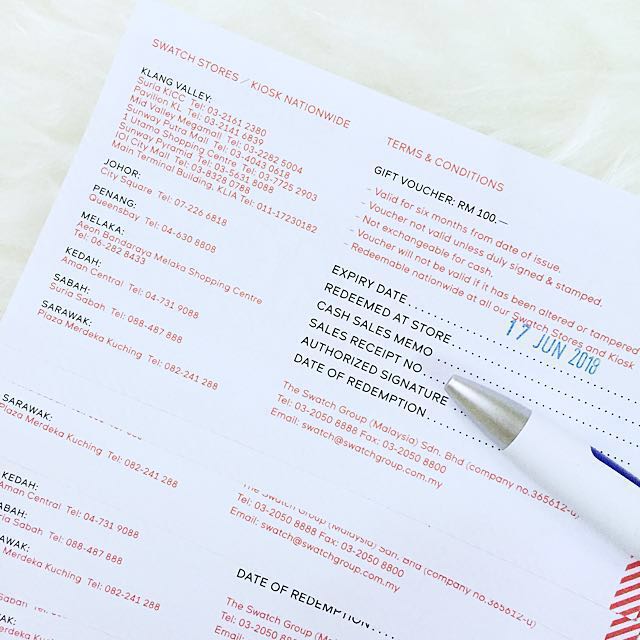 SWATCH STORES / KIOSK NATIONWIDE
KLANG VALLEY:
Suria KlCC Tel: 03-2161 2380
Pavilion KL Tel: 03-2141 6839
Mid Valley Megamall Tel: 03-2282 5004
Sunway Putra Mall Tel: 03-4043 0618
1 Utama Shopping Centre Tel: 03-7725 2903
Sunway Pyramid Tel: 03-5631 8088
IOI City Mall Tel: 03-8328 0788
Main Terminal Building, KLIA Tel: 011-17230182
JOHOR:
City Square Tel: 07-226 6818
PENANG:
Queensbay Tel: 04-630 8808
MELAKA:
Aeon Bandaraya Melaka Shopping Centre
Tel: 06-282 8433
KEDAH:
Aman Central Tel: 04-731 9088
SABAH:
Suria Sabah Tel: 088-487 888
SARAWAK:
Plaza Merdeka Kuching Tel: 082-241 288
TERMS & CONDITIONS
GIFT VOUCHER: RM 100.—
- Valid for six months from date of issue.
- Voucher not valid unless duly signed & stamped.
- Not exchangeable for cash.
- Voucher will not be valid if it has been altered or tampered
- Redeemable nationwide at all our Swatch Stores and Kiosk
EXPIRY DATE
17 JUN 2018
REDEEMED AT STORE
CASH SALES MEMO
SALES RECEIPT NO.
AUTHORIZED SIGNATURE
DATE OF REDEMPTION
The Swatch Group (Malaysia) Sdn. Bhd (company no.365612-u)
Tel: 03-2050 8888 Fax: 03-2050 8800
Email: swatch@swatchgroup.com.my
SARAWAK:
Plaza Merdeka Kuching Tel: 082-241 288
The Swatch Group (Malaysia) Sdn. Bhd (company no.365612-u)
Tel: 03-2050 8888 Fax: 03-2050 8800
Email: swatch@swatchgroup.com.my
KEDAH:
Aman Central Tel: 04-731 9088
Sabah Tel: 088-487 888
Merdeka Kuching Tel: 082-241 288
DATE OF REDEMPTION
The Swatch Group (Malaysia) Sdn. Bhd (company no.365612-u)
Tel: 03-2050 8888 Fax: 03-2050 8800
Email: swatch@swatchgroup.com.my
Sabah Tel: 088-487 888
Merdeka Kuching Tel: 082-241 288